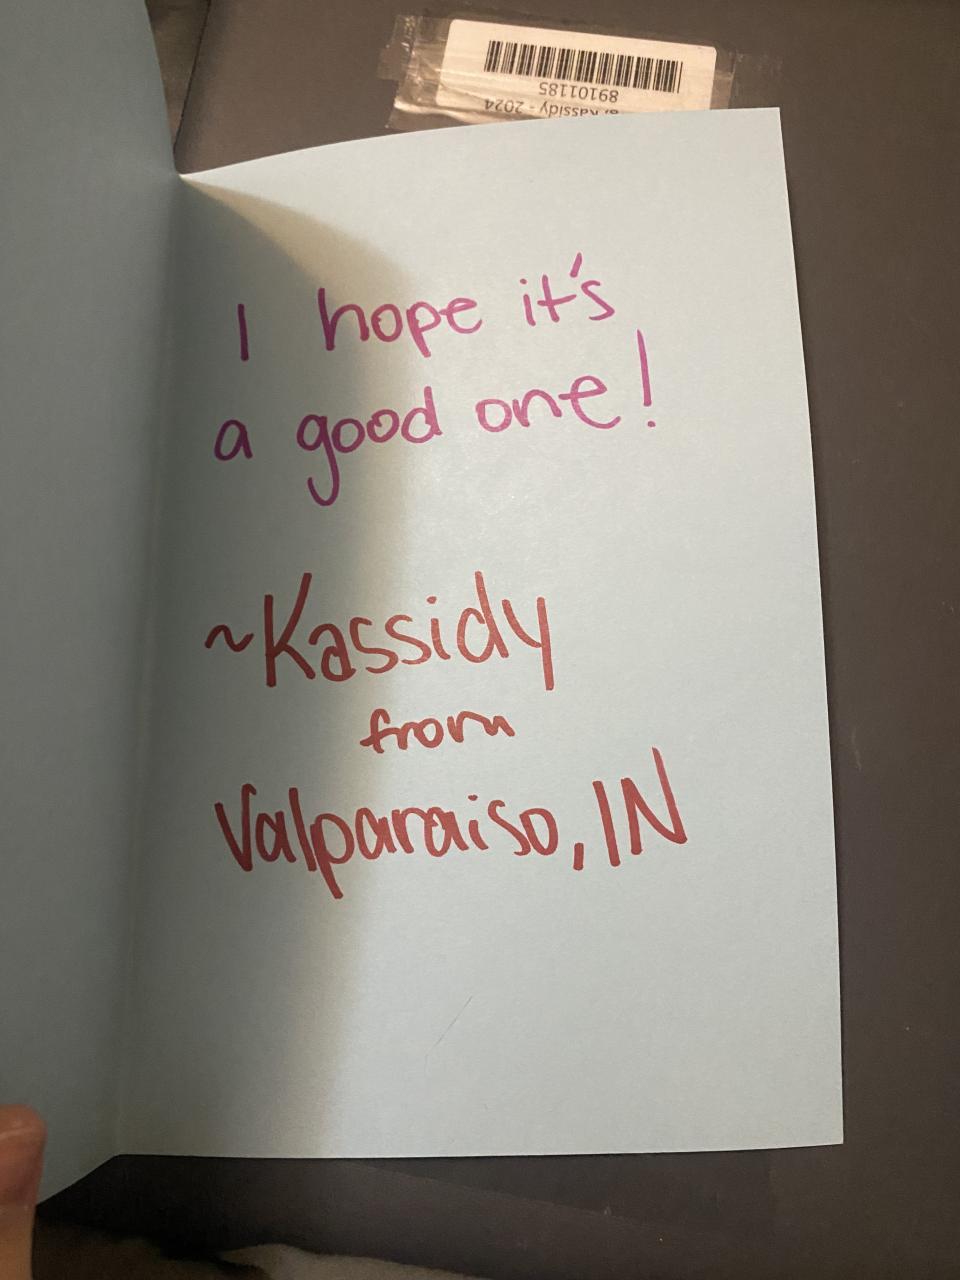 89101185
Kassidy - 2024
I hope it's
a good one!
~Kassidy
from
Valparaiso, IN